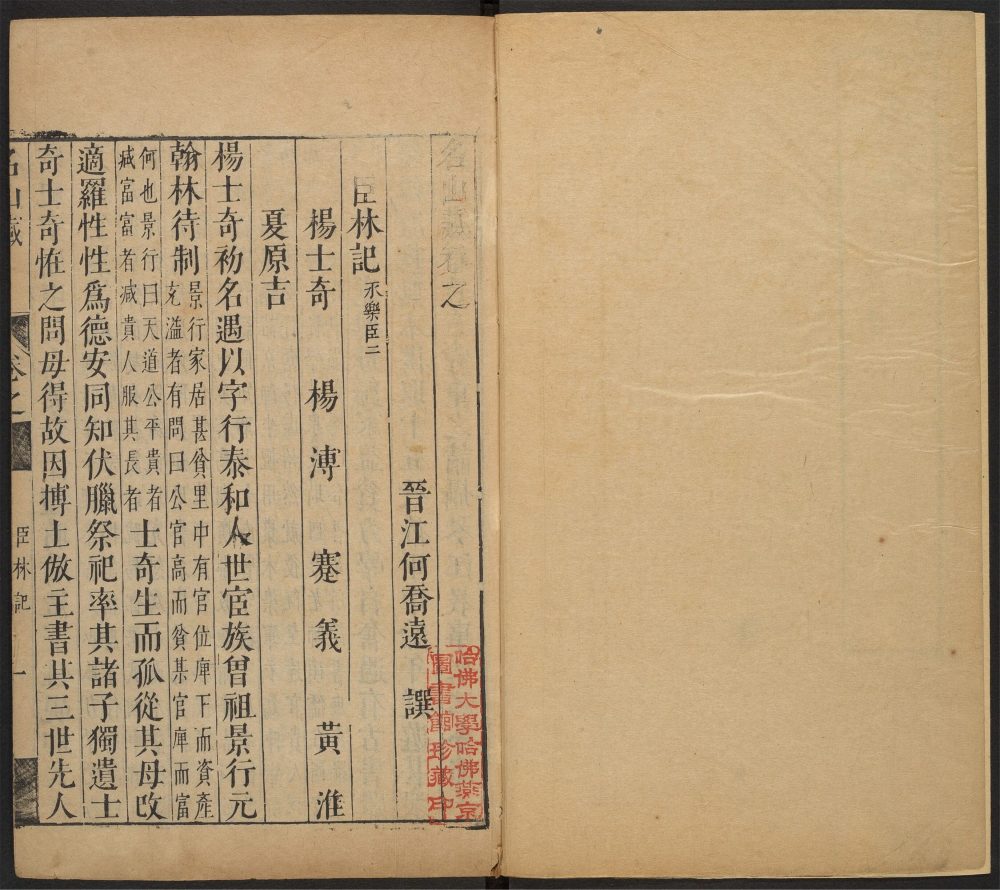 名山藏卷之
晉江何喬遠 譔
臣林記 永樂臣二
楊士奇 楊溥 蹇義 黃淮
夏原吉
楊士奇初名遇以字行泰和人世宦族曾祖景行元
翰林待制
景行家居甚貧里中有官位庳下而資產
充溢者有問曰公官高而貧某官庳而富
何也景行曰天道公平貴者
減富富者減貴人服其長者
士奇生而孤從其母改
適羅性性爲德安同知伏臘祭祀率其諸子獨遺士
奇士奇恠之問母得故因摶土倣主書其三世先人
名山藏 卷之 臣林記 一
哈佛大學哈佛燕京
圖書館珍藏印